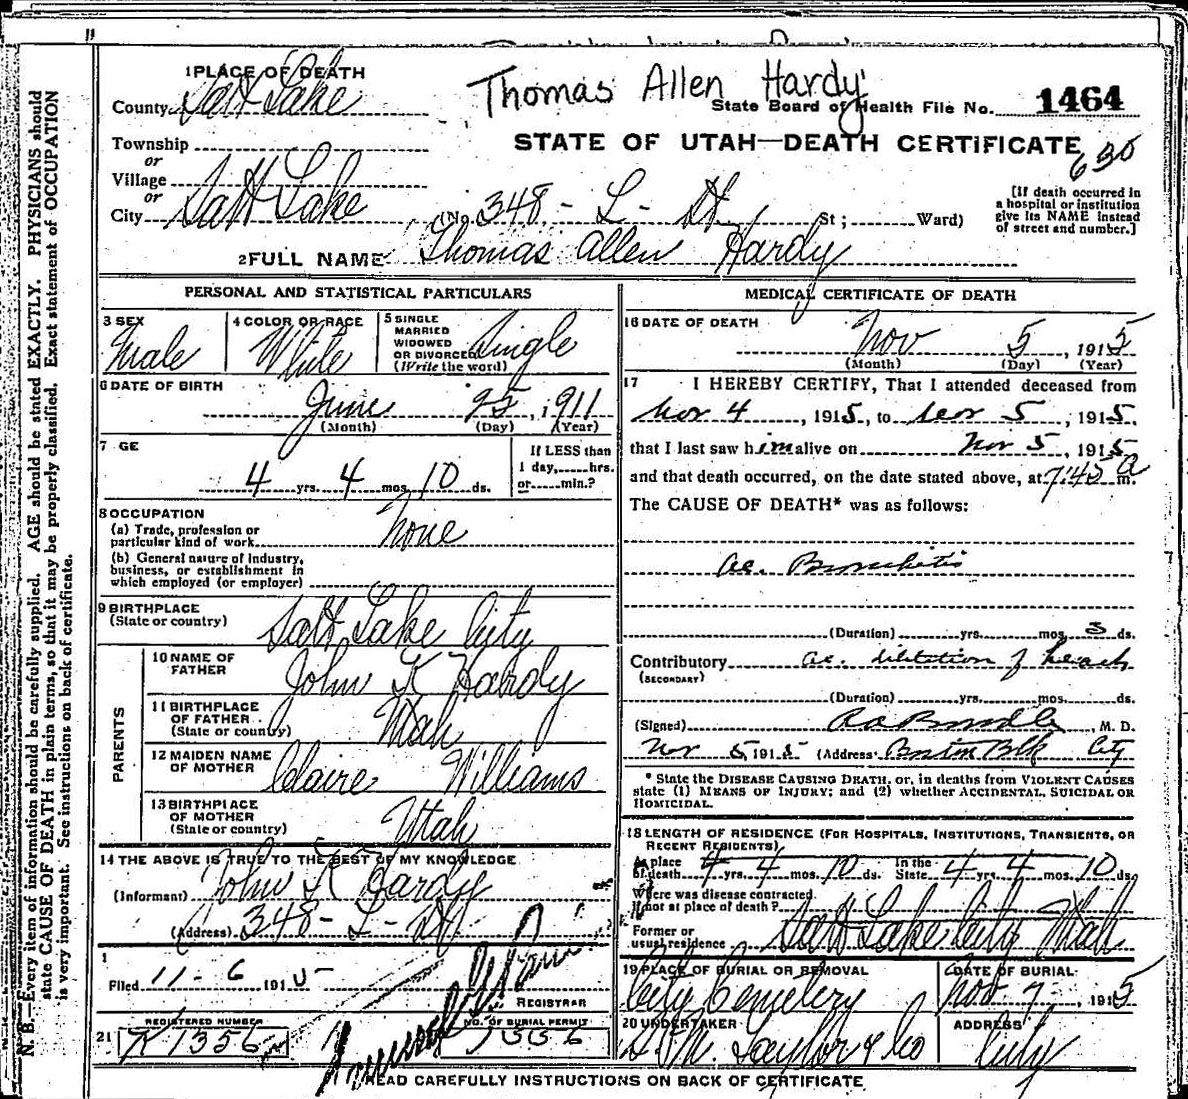 N. B.—Every item of information should be carefully supplied. AGE should be stated EXACTLY. PHYSICIANS should
state CAUSE OF DEATH in plain terms, so that it may be properly classified. Exact statement of OCCUPATION
is very important. See instructions on back of certificate.
1 PLACE OF DEATH
Thomas Allen Hardy
County Salt Lake
State Board of Health File No. 1464
Township
STATE OF UTAH—DEATH CERTIFICATE
630
or
Village
or
City Salt Lake (No. 348 - L - St St; Ward)
[If death occurred in
a hospital or institution
give its NAME instead
of street and number.]
2 FULL NAME Thomas Allen Hardy
PERSONAL AND STATISTICAL PARTICULARS
3 SEX Male
4 COLOR OR RACE White
5 SINGLE
MARRIED
WIDOWED
OR DIVORCED
(Write the word) Single
6 DATE OF BIRTH
June 25, 1911
(Month) (Day) (Year)
7 GE
4 yrs. 4 mos. 10 ds.
If LESS than
1 day, hrs.
or min.?
8 OCCUPATION
(a) Trade, profession or
particular kind of work None
(b) General nature of industry,
business, or establishment in
which employed (or employer)
9 BIRTHPLACE
(State or country) Salt Lake City
PARENTS
10 NAME OF
FATHER John K Hardy
11 BIRTHPLACE
OF FATHER
(State or country) Utah
12 MAIDEN NAME
OF MOTHER Claire Williams
13 BIRTHPLACE
OF MOTHER
(State or country) Utah
14 THE ABOVE IS TRUE TO THE BEST OF MY KNOWLEDGE
(Informant) John K Hardy
(Address) 348 - L - St
1
Filed 11-6 1915
REGISTRAR
REGISTERED NUMBER
NO. OF BURIAL PERMIT
21 K1356
MEDICAL CERTIFICATE OF DEATH
16 DATE OF DEATH
Nov 5, 1915
(Month) (Day) (Year)
17 I HEREBY CERTIFY, That I attended deceased from
Nov 4, 1915, to Nov 5, 1915,
that I last saw him alive on Nov 5, 1915
and that death occurred, on the date stated above, at 7:45 a m.
The CAUSE OF DEATH* was as follows:
Ac. Bronchitis
(Duration) yrs. mos. 3 ds.
Contributory Ac. dilitation of heart
(SECONDARY)
(Duration) yrs. mos. ds.
(Signed) M. D.
Nov 5, 1915 (Address) Boston Blk City
* State the DISEASE CAUSING DEATH, or, in deaths from VIOLENT CAUSES
state (1) MEANS OF INJURY; and (2) whether ACCIDENTAL, SUICIDAL OR
HOMICIDAL.
18 LENGTH OF RESIDENCE (FOR HOSPITALS, INSTITUTIONS, TRANSIENTS, OR
RECENT RESIDENTS)
At place
of death 4 yrs. 4 mos. 10 ds. In the
State 4 yrs. 4 mos. 10 ds.
Where was disease contracted
if not at place of death?
Former or
usual residence Salt Lake City Utah
19 PLACE OF BURIAL OR REMOVAL
City Cemetery
DATE OF BURIAL
Nov 7, 1915
20 UNDERTAKER
S. M. Taylor & Co
ADDRESS
City
READ CAREFULLY INSTRUCTIONS ON BACK OF CERTIFICATE